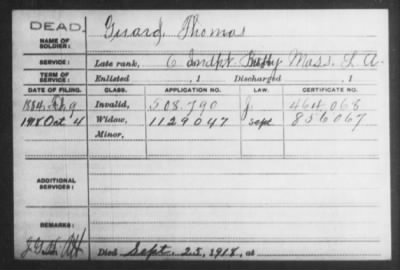 DEAD.
NAME OF SOLDIER: Guard, Thomas
SERVICE: Late rank, 6 Indpt. Batty Mass. L. A.
TERM OF SERVICE: Enlisted , 1 Discharged , 1
DATE OF FILING. CLASS. APPLICATION NO. LAW. CERTIFICATE NO.
1884, Feb 9 Invalid, 508.790 J. 464.068
1918 Oct 4 Widow, 1129047 Sept 856067
Minor,
ADDITIONAL SERVICES:
REMARKS:
Died Sept. 25, 1918, at